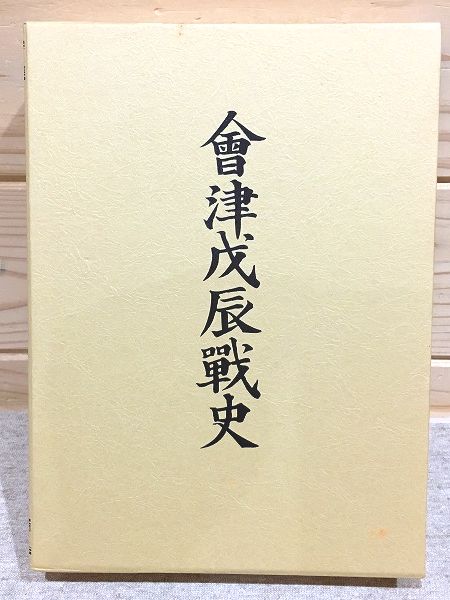 會津戊辰戰史